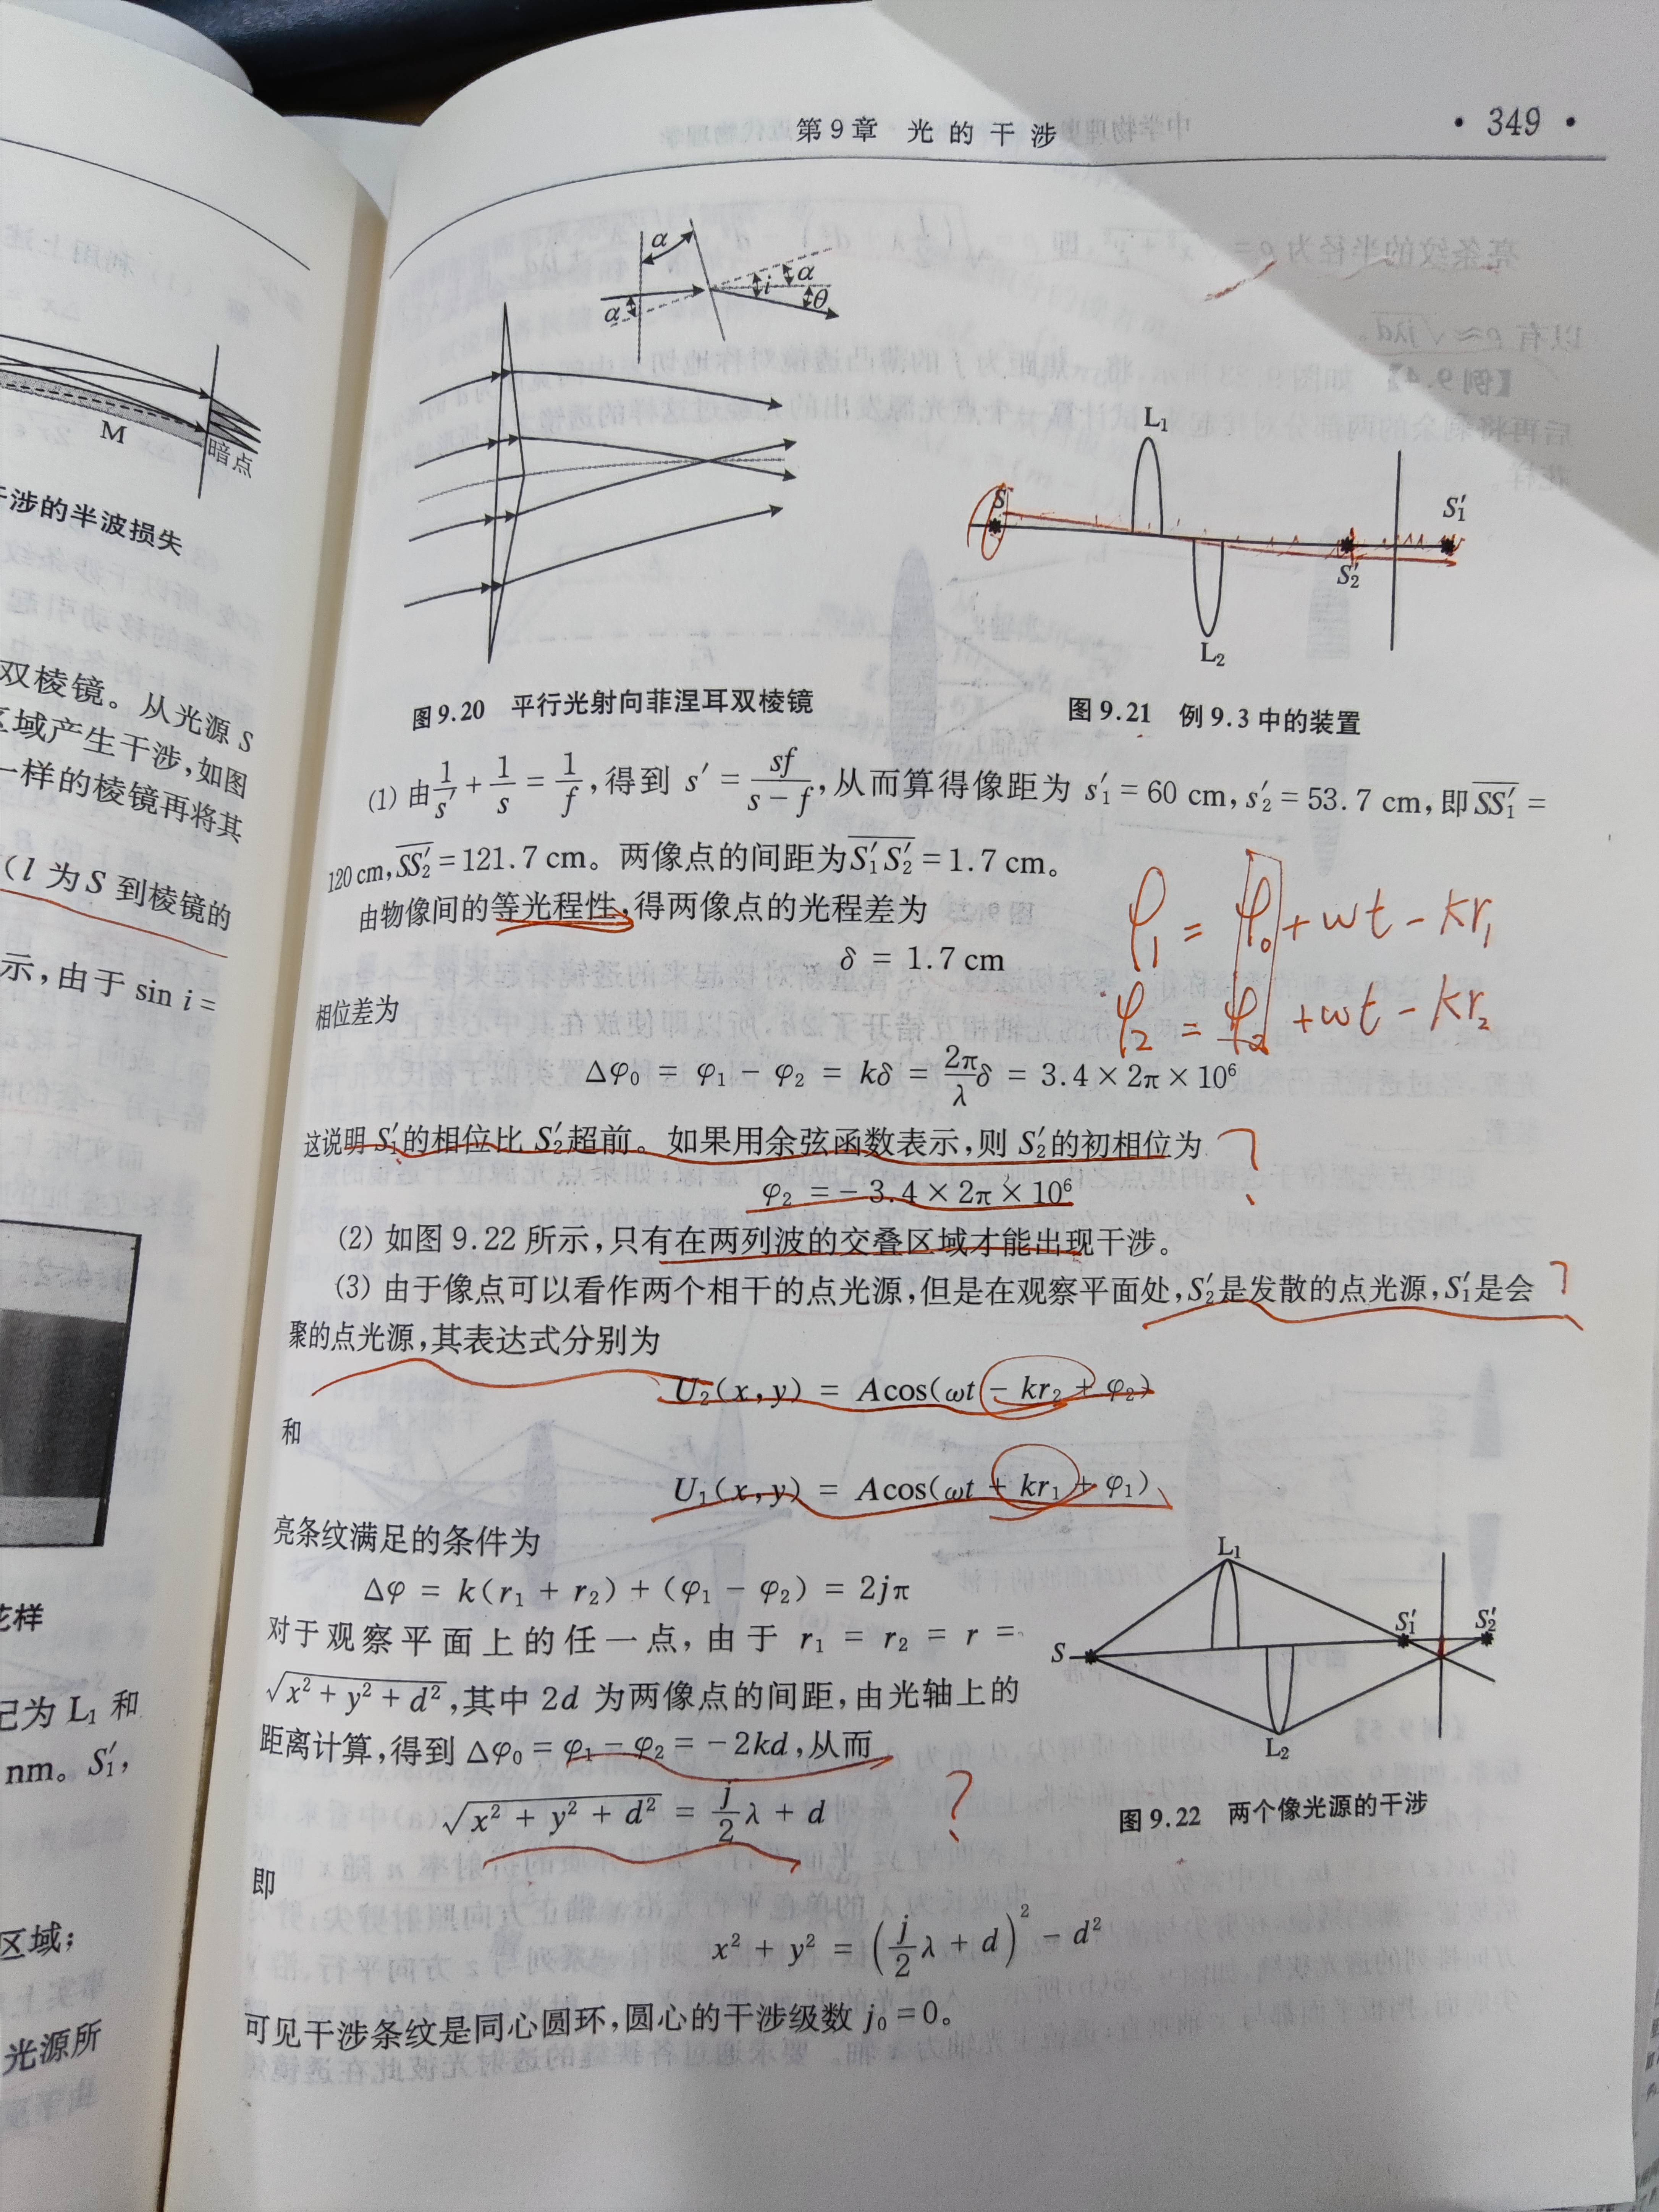 第9章 光的干涉
· 349 ·
M
暗点
干涉的半波损失
双棱镜。从光源 S
区域产生干涉,如图
一样的棱镜再将其
(l 为 S 到棱镜的
示,由于 sin i =
花样
记为 L₁ 和
nm。S′₁,
区域;
光源所
α
α
i
α
θ
图9.20 平行光射向菲涅耳双棱镜
L₁
S
S′₁
S′₂
L₂
图9.21 例9.3中的装置
(1) 由 1/s′ + 1/s = 1/f ,得到 s′ = sf/(s − f),从而算得像距为 s′₁ = 60 cm, s′₂ = 53.7 cm,即 S̅S̅′₁ =
120 cm, S̅S̅′₂ = 121.7 cm。两像点的间距为 S̅′₁S̅′₂ = 1.7 cm。
由物像间的等光程性,得两像点的光程差为
δ = 1.7 cm
φ₁ = φ₀ + ωt − kr₁
相位差为
+ ωt − kr₂
Δφ₀ = φ₁ − φ₂ = kδ = 2π/λ δ = 3.4 × 2π × 10⁶
这说明 S′₁的相位比 S′₂超前。如果用余弦函数表示,则 S′₂的初相位为 ?
φ₂ = − 3.4 × 2π × 10⁶
(2) 如图 9.22 所示,只有在两列波的交叠区域才能出现干涉。
(3) 由于像点可以看作两个相干的点光源,但是在观察平面处,S′₂是发散的点光源,S′₁是会 ?
聚的点光源,其表达式分别为
U₂(x,y) = Acos(ωt − kr₂ + φ₂)
和
U₁(x,y) = Acos(ωt + kr₁ + φ₁)
亮条纹满足的条件为
Δφ = k(r₁ + r₂) + (φ₁ − φ₂) = 2jπ
对于观察平面上的任一点,由于 r₁ = r₂ = r =
√(x² + y² + d²),其中 2d 为两像点的间距,由光轴上的
距离计算,得到 Δφ₀ = φ₁ − φ₂ = − 2kd,从而
√(x² + y² + d²) = j/2 λ + d
?
L₁
S
S′₁
S′₂
L₂
图9.22 两个像光源的干涉
即
x² + y² = (j/2 λ + d)² − d²
可见干涉条纹是同心圆环,圆心的干涉级数 j₀ = 0。